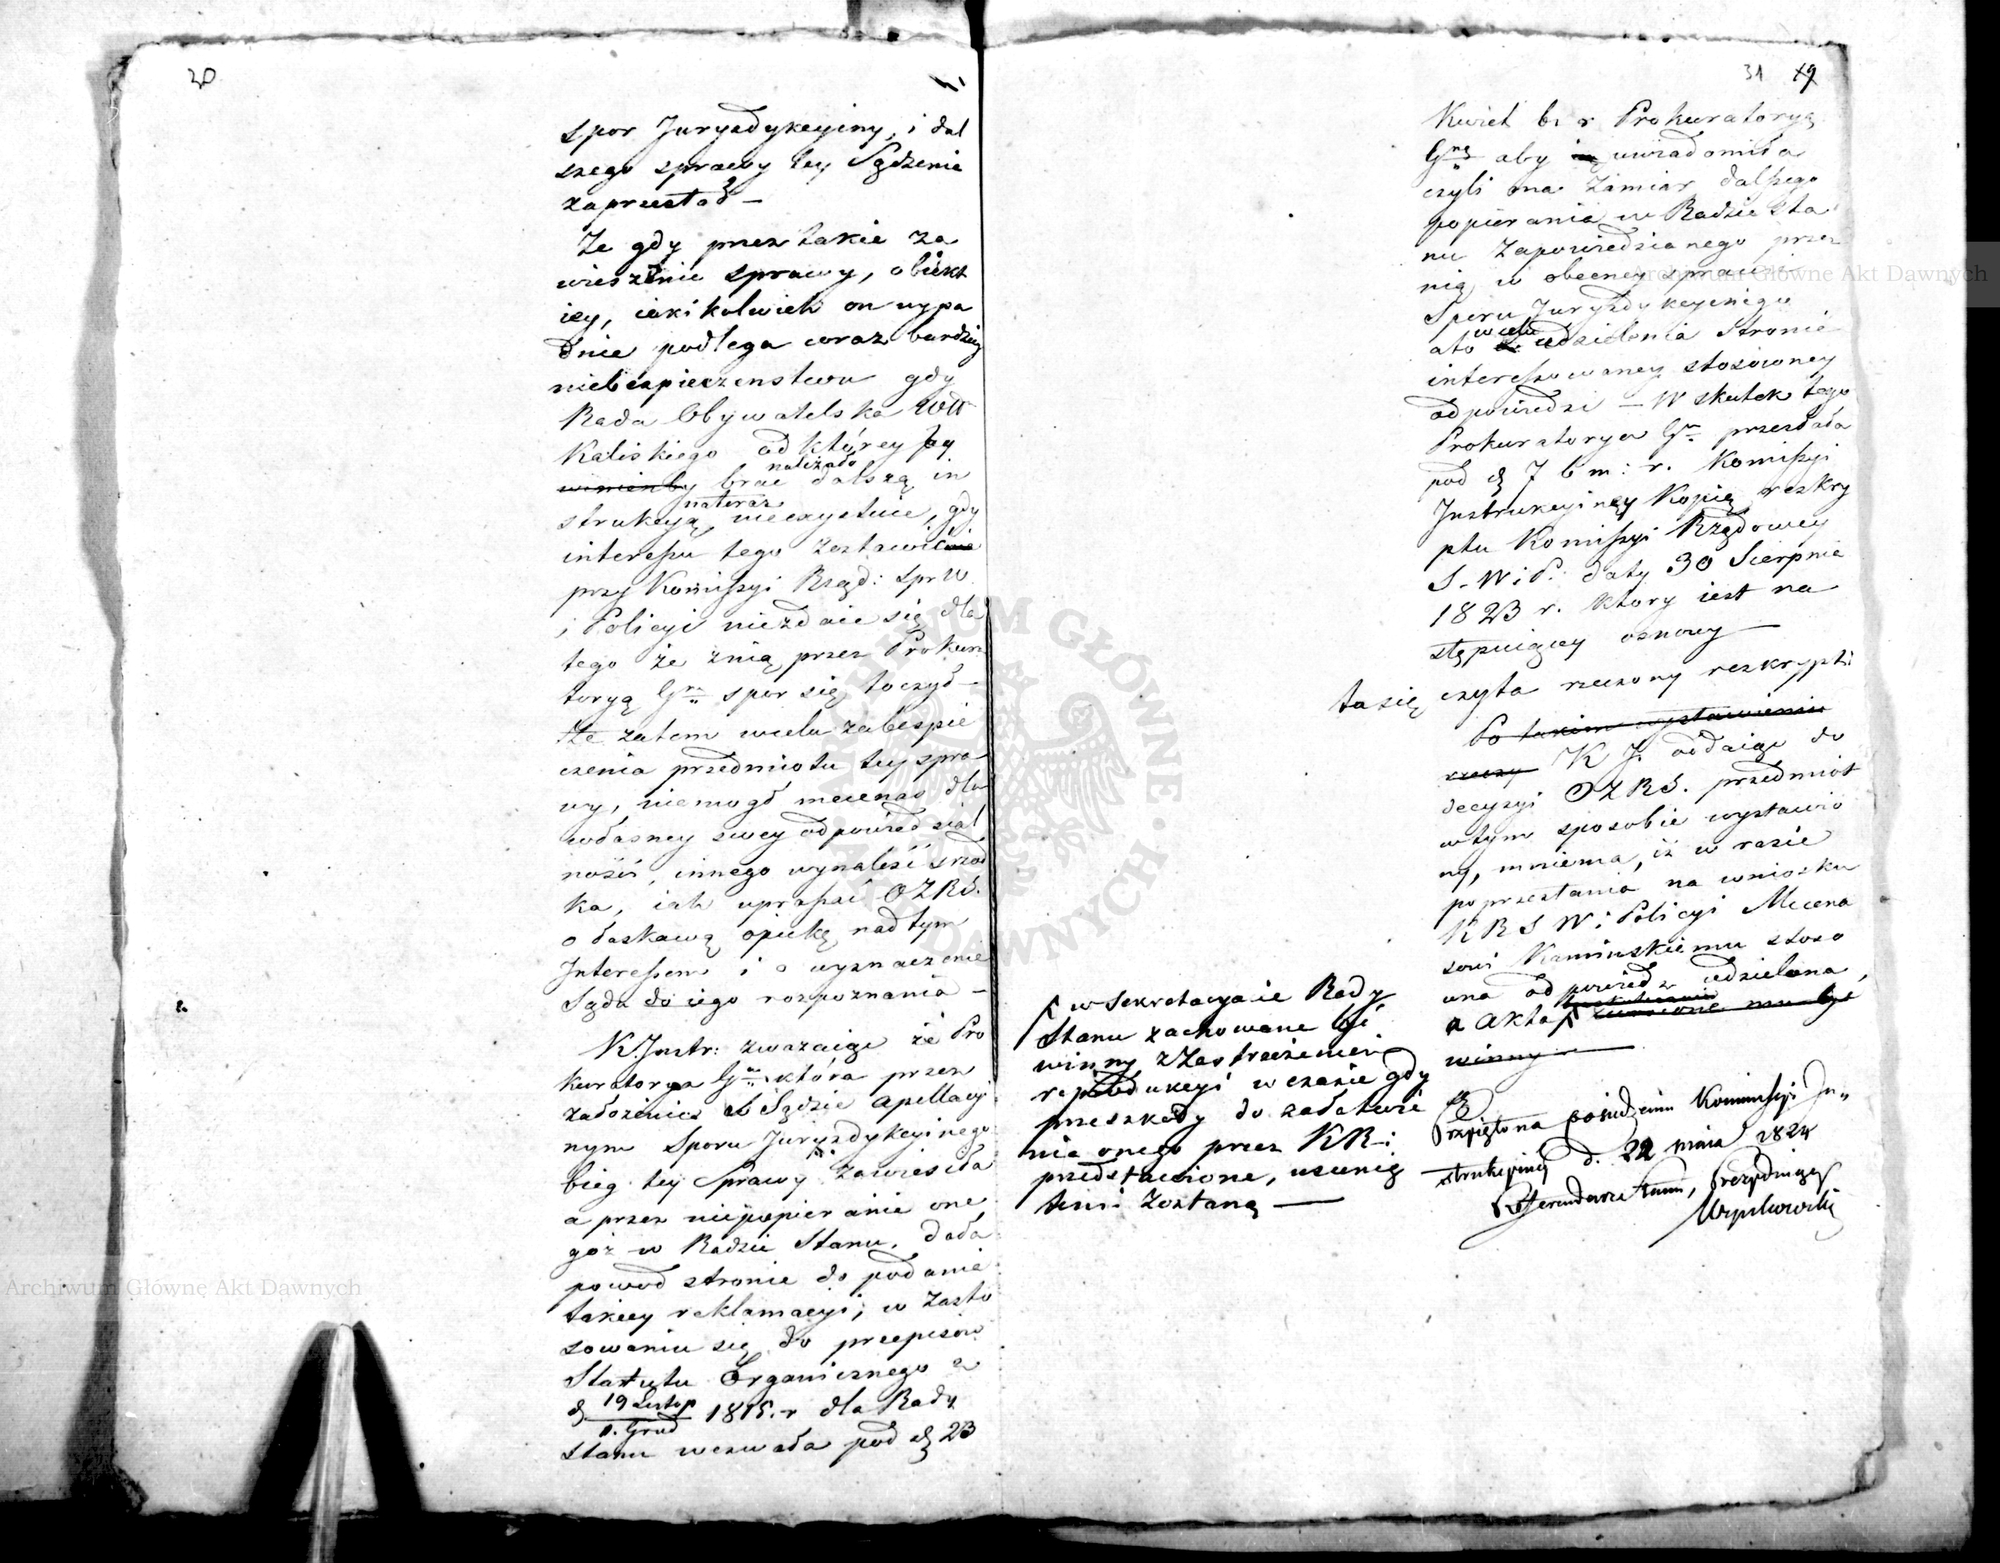 20
spor Jurysdykcyiny, i dal
szego sprawy tey Sądzenia
zaprzestał —
Że gdy przez takie za
wieszenie sprawy, obiekt
iey, iakikolwiek on wypa
dnie podlega coraz bardziey
niebezpieczenstwu gdy
Rada Obywatelska Wtt
Kaliskiego od którey by
należało
brac dalszą in
nateraz
strukcyą, nieexystuie, gdy
interessu tego zostawić
przy Komissyi Rząd: Spr W.
i Policyi niezdaie się dla
tego że znią przez Prokura
toryą Gną spor się toczył —
Że zatem wcelu zabespie
czenia przedmiotu tey spra
wy, niemogł mecenas dla
własney swey odpowiedzial
ności, innego wynaleść srzod
ka, iak upraszać OZRS.
o łaskawą opiekę nad tym
Interessem i o wyznaczenie
Sądu do iego rozpoznania —
K. Instr: zwazaiąc że Pro
kuratorya Gna która przez
założenie w Sądzie Apellacy
nym Sporu Jurysdykcyinego
bieg tey Sprawy zawiesiła
a przez niepopieranie one
goż w Radzie Stanu, dała
powod stronie do podania
takiey reklamacyi; w zasto
sowaniu się do przepisów
Statutu Organicznego z
d. 19 Listop 1815. r dla Rady
1. Grud
Stanu wezwała pod d. 23
31 19
Kwiet b. r Prokuratoryą
Gną aby uwiadomiła
czyli ma Zamiar dalszego
popierania w Radzie Sta
nu Zapowiedzianego przez
nią w obecney sprawie
Sporu Jurysdykcyinego
wcelu
a to udzielenia Stronie
interessowaney stosowney
odpowiedzi — W skutek tego
Prokuratorya Gna przesłała
pod d. 7 b m: r. Komissyi
Instrukcyiney Kopią reskry
ptu Komissyi Rządowey
S. W i P. daty 30 Sierpnia
1823 r. ktory iest na
stępuiącey osnowy —
tu się czyta rzeczony reskrypt:
Po takim wystawieniu
rzeczy K J. oddaiąc do
decyzyi OZRS. przedmiot
w tym sposobie wystawio
ny, mniema, iż w razie
poprzestania na wniosku
KRSW i Policyi Mecena
sowi Kamińskiemu stoso
wna odpowiedz udzielona,
a Akta
winny
w Sekretaryacie Rady
Stanu zachowane być
winny z Zastrzeżeniem
reprodukcyi w czasie gdy
przeszkody do załatwie
nia onego przez KR:
przedstawione, usunię
temi Zostaną —
Przyięto na posiedzeniu Kommissyi In„
strukcyiney d. 22 maia 1824
Referendarz Stanu, Prezyduiący